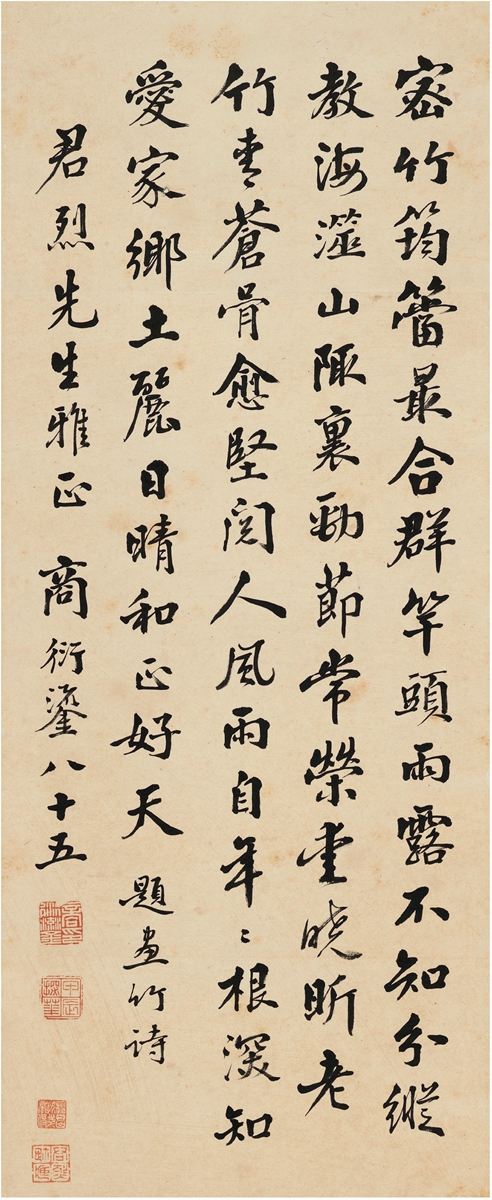 密竹筠簹最合群竿頭雨露不知分縱
教海澨山陬裏勁節常榮曉昕老
竹青蒼骨愈堅閱人風雨自年〻根深知
愛家鄉土麗日晴和正好天 題畫竹詩
君烈先生雅正 商衍鎏八十五
商衍鎏印
甲辰探花